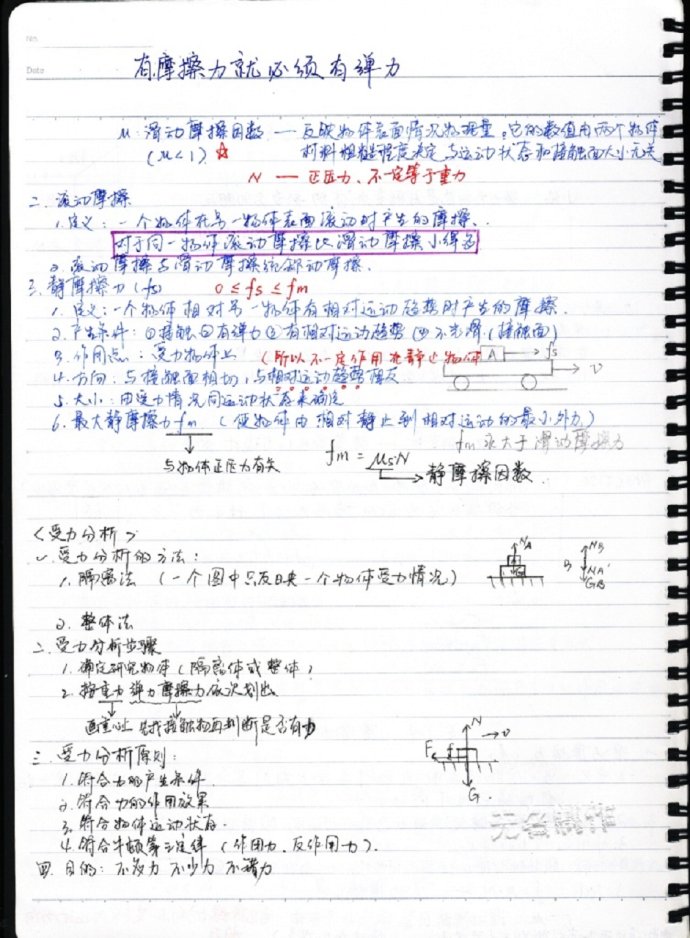 No.
Date
有摩擦力就必须有弹力
μ 滑动摩擦因数 — 反映物体表面情况物理量,它的数值由两个物体
(μ<1) ☆ 材料粗糙程度决定,与运动状态和接触面大小无关
N — 正压力、不一定等于重力
二. 滚动摩擦
1. 定义:一个物体在另一物体表面滚动时产生的摩擦.
对于同一物体滚动摩擦比滑动摩擦小得多
2. 滚动摩擦与滑动摩擦统称动摩擦.
三. 静摩擦力(fs) 0≤fs≤fm
1. 定义:一个物体相对另一物体有相对运动趋势时产生的摩擦.
2. 产生条件:①接触②有弹力③有相对运动趋势④不光滑(接触面)
3. 作用点:受力物体上(所以不一定作用在静止物体 A fs v
4. 方向:与接触面相切,与相对运动趋势相反
5. 大小:由受力情况同运动状态来确定
6. 最大静摩擦力fm (使物体由相对静止到相对运动的最小外力)
fm 永大于滑动摩擦力
与物体正压力有关 fm = μsN
静摩擦因数.
<受力分析>
一. 受力分析的方法:
1. 隔离法 (一个图中只反映一个物体受力情况) NA B NB
NA' GB
2. 整体法
二. 受力分析步骤
1. 确定研究物体(隔离体或整体)
2. 按重力 弹力 摩擦力依次划出
画重心上 先找接触物再判断是否有力
三. 受力分析原则: F f N v
1. 符合力的产生条件.
2. 符合力的作用效果 G
3. 符合物体运动状态.
4. 符合牛顿第三定律 (作用力、反作用力).
四. 目的:不多力 不少力 不错力